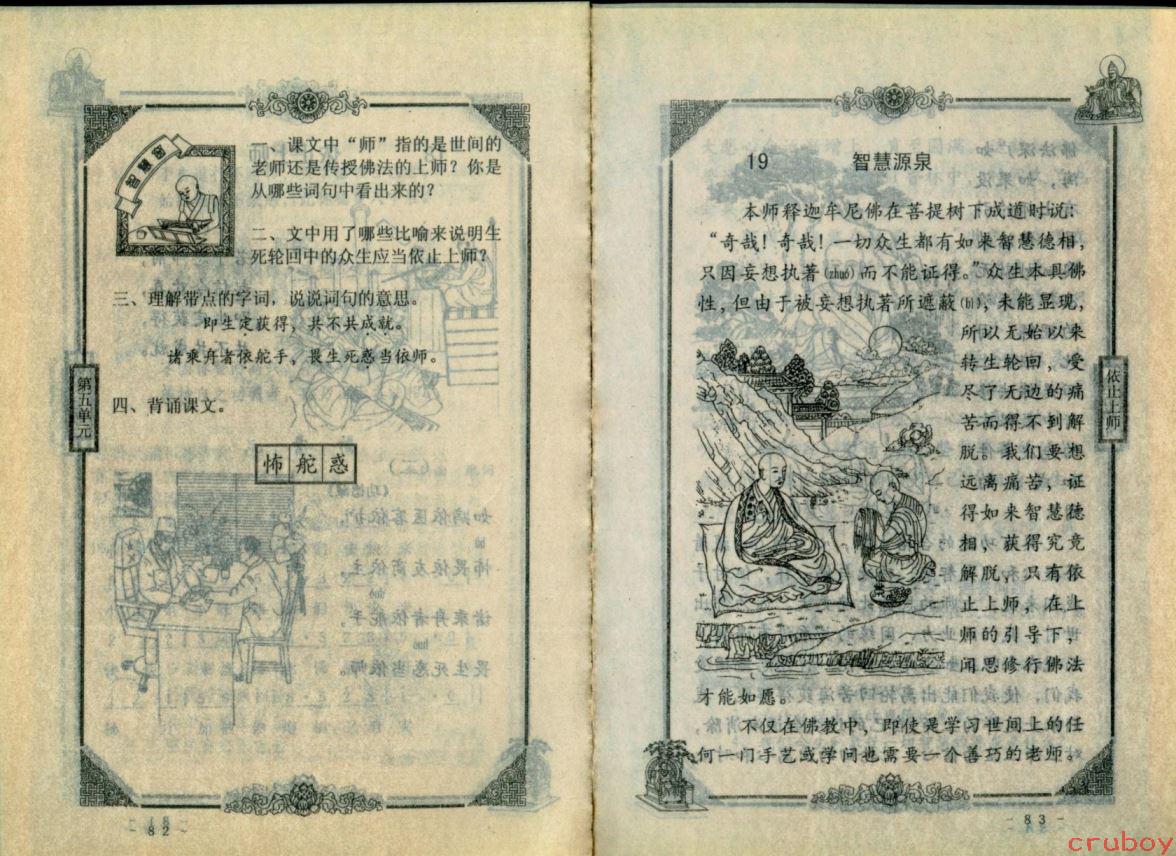 智慧窗
一、课文中“师”指的是世间的
老师还是传授佛法的上师？你是
从哪些词句中看出来的？
二、文中用了哪些比喻来说明生
死轮回中的众生应当依止上师？
三、理解带点的字词，说说词句的意思。
即生定获得，共不共成就。
诸乘舟者依舵手，畏生死惑当依师。
四、背诵课文。
怖舵惑
第五单元
- 82 -
19 智慧源泉
本师释迦牟尼佛在菩提树下成道时说：
“奇哉！奇哉！一切众生都有如来智慧德相，
只因妄想执著(zhuó)而不能证得。”众生本具佛
性，但由于被妄想执著所遮蔽(bì)，未能显现，
所以无始以来
转生轮回，受
尽了无边的痛
苦而得不到解
脱。我们要想
远离痛苦，证
得如来智慧德
相，获得究竟
解脱，只有依
止上师，在上
师的引导下，
闻思修行佛法
才能如愿。
不仅在佛教中，即使是学习世间上的任
何一门手艺或学问也需要一个善巧的老师。
依止上师
- 83 -
cruboy